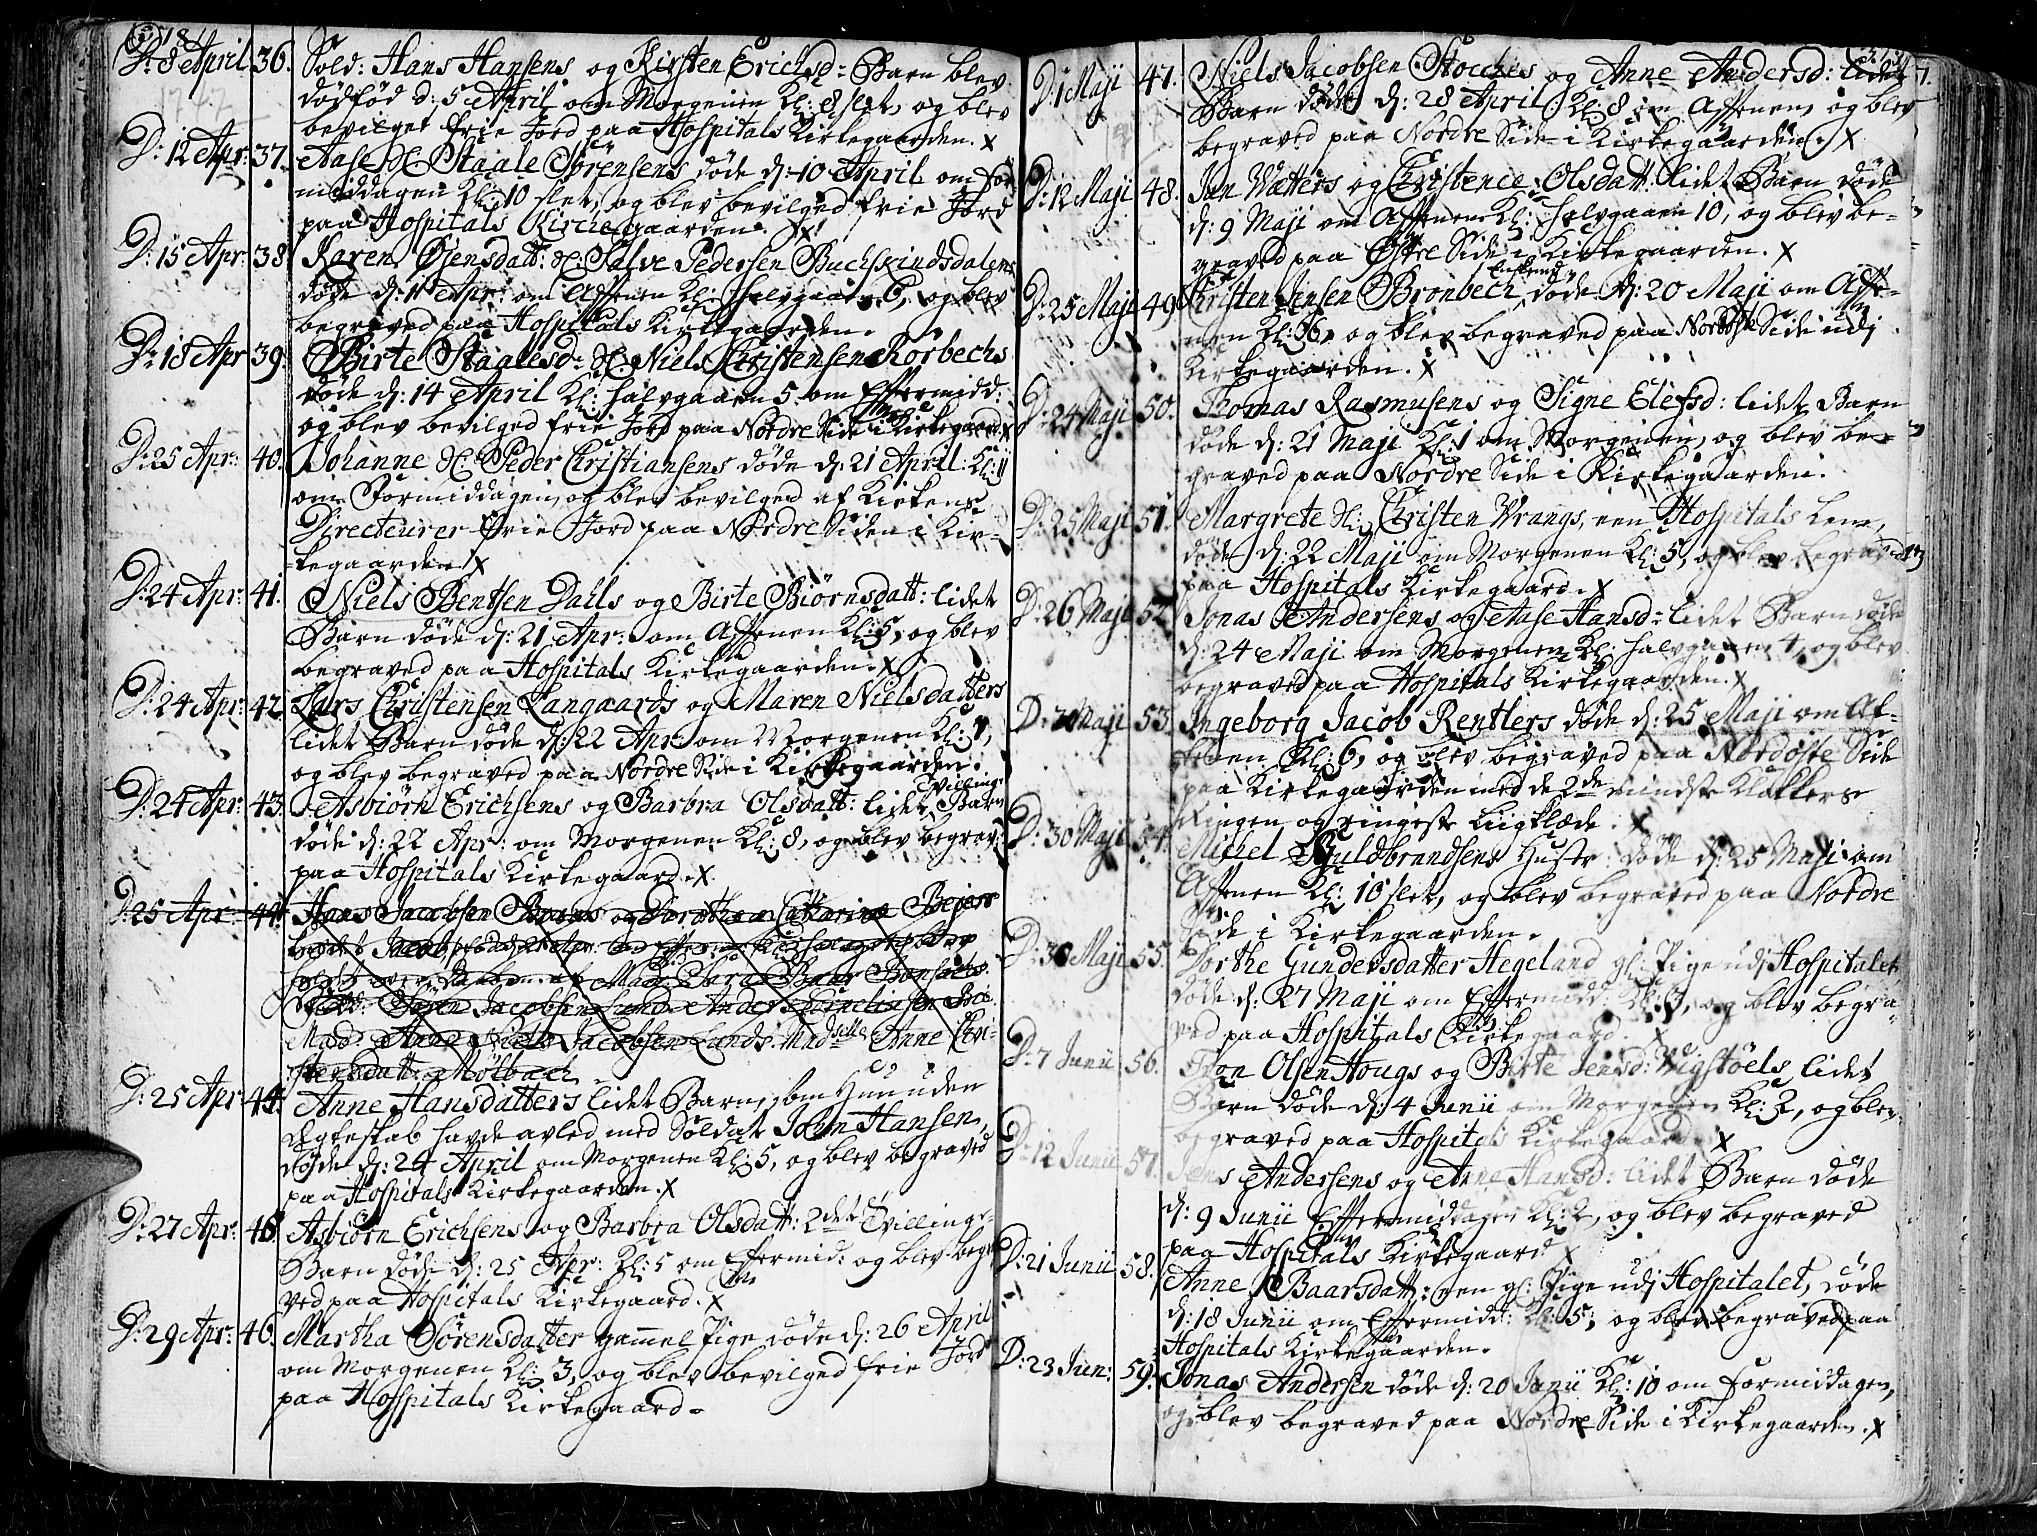 D: 8 April 36. Sold: Hans Hansens og Kirsten Erichsd: Barn blev
1742 dødfød d: 5 April om Morgenen Kl: 8 slet, og blev
bevilget frie Jord paa Hospitals Kirkegaarden. X
D: 12 Apr: 37. Aase Staale Sørensens døde d: 10 April om For-
middagen Kl: 10 slet, og blev bevilged frie Jord
paa Hospitals Kirchegaarden. X
D: 15 Apr: 38 Karen Ojensdatt: Salve Pedersen Buchskindsdalens
døde d: 11 Apr: om Afftenen Kl: halvgaaen 6, og blev
begraved paa Hospitals Kirkegaarden.
D: 18 Apr 39. Birte Staalesd: Niels Christensen Rørbechs
døde d: 14 April Kl: halvgaaen 5 om Efftermidd:
og blev bevilged frie Jord paa Nordre Side i Kirkegaard X
D: 25 Apr: 40. Johanne Peder Christiansens døde d: 21 April: Kl: 11
om Formiddagen, og blev bevilged af Kirkens
Directeurer frie Jord paa Nordre Siden i Kir-
kegaarden X
D: 24 Apr: 41. Niels Bentsen Dahls og Birte Biørnsdatt: lidet
Barn døde d: 21 Apr: om Afftenen Kl: 5, og blev
begraved paa Hospitals Kirkegaarden. X
D: 24 Apr: 42. Lars Christensen Langaards og Maren Nielsdatters
lidet Barn døde d: 22 Apr: om Morgenen Kl: 1,
og blev begraved paa Nordre Side i Kirkegaarden.
D: 24 Apr: 43. Asbiørn Erichsens og Barbra Olsdatt: lidet Tvilling Barn
døde d: 22 Apr: om Morgenen Kl: 8, og blev begrav:
paa Hospitals Kirkegaard. X
D: 25 Apr: 44. Hans Jacobsen og Dorothea Catharina Beiers
Jacob
over Daaben af Mad: Sara Baar
Søren Jacobsen Lund Anders Cornelius
Mad: Anne Niels Jacobsen Lunds. Madselle Anne Chri-
stensdatt: Mølbach
D: 25 Apr 44. Anne Hansdatters lidet Barn, som Hun uden
Ægteskab havde avled med Soldat John Hansen,
døde d: 24 April om Morgenen Kl: 5, og blev begraved
paa Hospitals Kirkegaarden. X
D: 27 Apr: 45 Asbiørn Erichsens og Barbra Olsdatt: 2det Tvillinge-
Barn døde d: 25 Apr: Kl: 5 om Eftermid: og blev begra
ved paa Hospitals Kirkegaard. X
D: 29 Apr: 46. Martha Sørensdatter gammel Pige døde d: 26 April
om Morgenen Kl: 3, og blev bevilged frie Jord
paa Hospitals Kirkegaard.
D: 1 Maji 47. Niels Jacobsen Stoches og Anne Andersd: lidet
Barn døde d: 28 April Kl: 8 om Afftenen, og blev
begraved paa Nordre Side i Kirkegaarden. X
D: 12 Maji 48. Jan Watters og Christence Olsdatt: lidet Barn døde
d: 9 Maji om Afftenen Kl: halvgaaen 10, og blev be-
graved paa Østre Side i Kirkegaarden. X
D: 25 Maji 49 Christen Jensen Brønbech døde d: 20 Maji om Afte-
nen Kl: 6, og blev begraved paa Nordøste Side udj
Kirkegaarden. X
D: 24 Maji 50. Thomas Rasmusens og Signe Elefsd: lidet Barn
døde d: 21 Maji Kl: 1 om Morgenen, og blev be-
graved paa Nordre Side i Kirkegaarden.
D: 25 Maji 51. Margrete Christen Wrangs, een Hospitals Lem,
døde d: 22 Maji om Morgenen Kl: 5, og blev begraved
paa Hospitals Kirkegaard. X
D: 26 Maji 52. Jonas Andersens og Aase Hansd: lidet Barn døde
d: 24 Maji om Morgenen Kl: halvgaaen 4, og blev
begraved paa Hospitals Kirkegaarden. X
Maji 53. Ingeborg Jacob Rentlers døde d: 25 Maji om Af-
tenen Kl: 6, og blev begraved paa Nordøste Side
paa Kirkegaarden med de 2de mindste Klokkers
Ringen og ringeste Liigklæde. X
D: 30 Maji 54. Michel Guldbrandsens Hustr: døde d: 25 Maji om
Afftenen Kl: 10 slet, og blev begraved paa Nordre
Side i Kirkegaarden.
D: 30 Maji 55. Dorthe Gundersdatter Hegeland gl: Pige udj Hospitalet
døde d: 27 Maji om Efftermidd: Kl: 3, og blev begra-
ved paa Hospitals Kirkegaard. X
D: 7 Junii 56. Tron Olsen Hougs og Birte Jensd: Wigstøels lidet
Barn døde d: 4 Junii om Morgenen Kl: 2, og blev
begraved paa Hospitals Kirkegaard. X
D: 12 Junii 57. Jens Andersens og Anne Hansd: lidet Barn døde
d: 9 Junii Efftermiddagen Kl: 2, og blev begraved
paa Hospitals Kirkegaard X
D: 21 Junii 58. Anne Baarsdatt: een gl: Pige udj Hospitalet, døde
d: 18 Junii om Efftermidd: Kl: 5, og blev begraved paa
Hospitals Kirkegaarden.
D: 23 Jun: 59. Jonas Andersen døde d: 20 Junii Kl: 10 om Formiddagen,
og blev begraved paa Nordre Side i Kirkegaarden. X